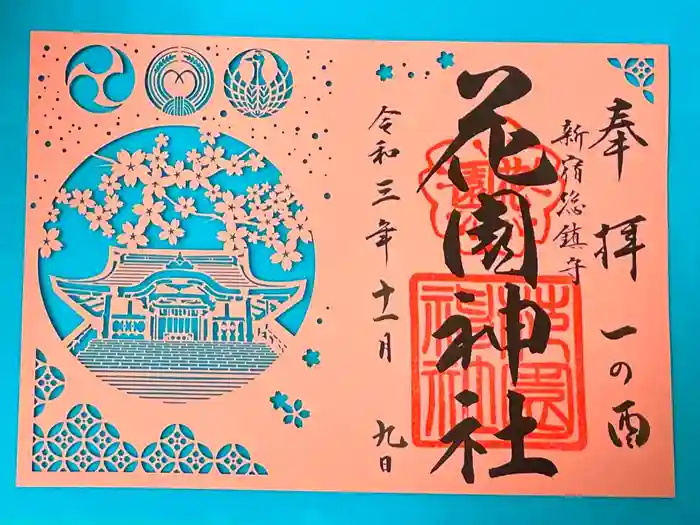 奉拝 一の酉
新宿総鎮守
花園神社
令和三年十一月九日
花園神社